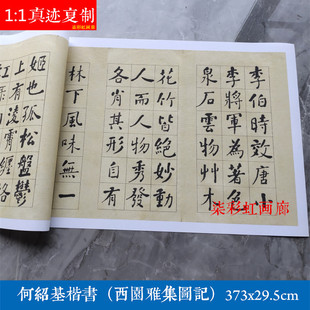 1:1真迹复制
柒彩虹画廊
李伯時效唐小
李將軍為著色
泉石雲物艸木
花竹皆絕妙動
人而人物秀發
各肖其形自有
林下風味無一
姬也孤松盤鬱
上有凌霄纏絡
柒彩虹画廊
何紹基楷書（西園雅集圖記）373x29.5cm